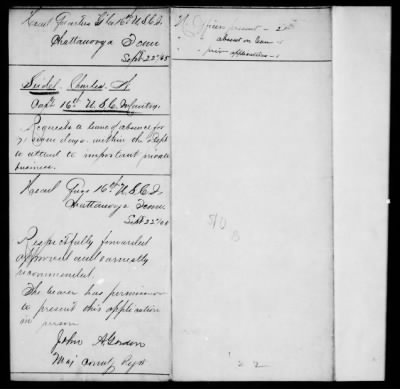 Head Quarters 16th U.S.C.I.
Chattanooga Tenn
Sept 22nd 65
Seidel, Charles A
Capt 16th U.S.C. Infantry
Requests a leave of absence for
7, seven days within the Dept
to attend to important private
business.
Head Qrs 16th U.S.C.I
Chattanooga Tenn
Sept 22nd 65
Respectfully forwarded
approved and earnestly
recommended.
The bearer has permission
to present this application
in person
John A. Gordon
Maj Comdg Regt
Officers present - 22
" absent on leave
" prior applications -